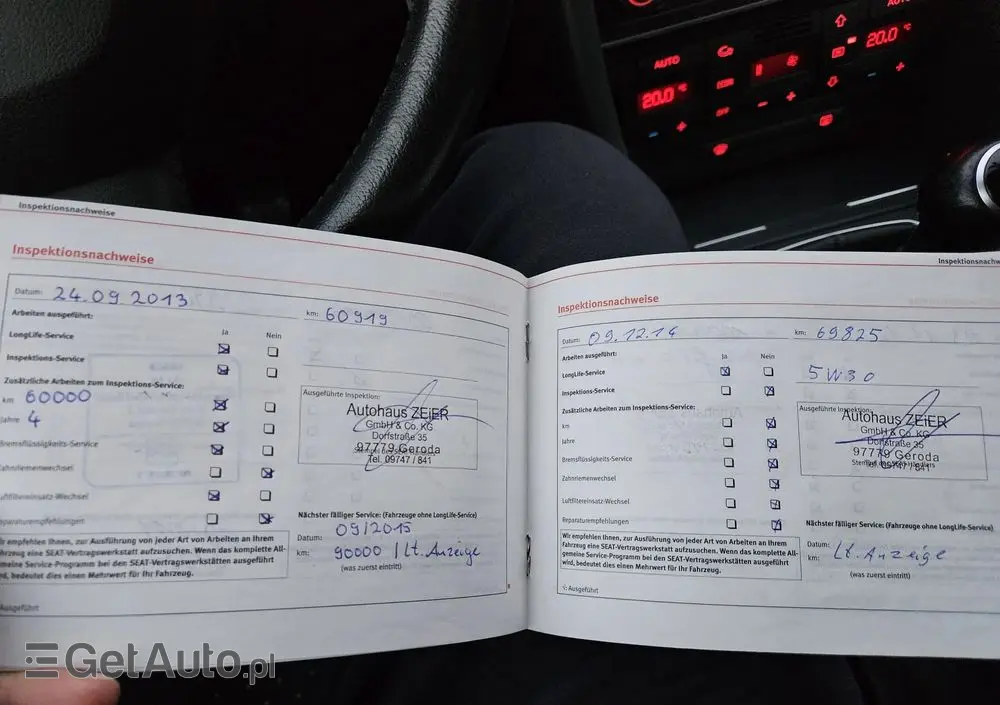 AUTO
AUTO
20.0 °C
20.0 °C
OFF
Inspektionsnachweise
Inspektionsnachweise
Datum: 24.09.2013
km: 60919
Arbeiten ausgeführt:
Ja
Nein
LongLife-Service
Inspektions-Service
Zusätzliche Arbeiten zum Inspektions-Service:
km 60000
Jahre 4
Bremsflüssigkeits-Service
Zahnriemenwechsel
Luftfiltereinsatz-Wechsel
Reparaturempfehlungen
Ausgeführte Inspektion:
Autohaus ZEiER
GmbH & Co. KG
Dorfstraße 35
97779 Geroda
Tel. 09747 / 841
Nächster fälliger Service: (Fahrzeuge ohne LongLife-Service)
Datum: 09/2015
km: 90000 / Lt. Anzeige
(was zuerst eintritt)
Wir empfehlen Ihnen, zur Ausführung von jeder Art von Arbeiten an Ihrem
Fahrzeug eine SEAT-Vertragswerkstatt aufzusuchen. Wenn das komplette All-
gemeine Service-Programm bei den SEAT-Vertragswerkstätten ausgeführt
wird, bedeutet dies einen Mehrwert für Ihr Fahrzeug.
Ausgeführt
Inspektionsnachw
Inspektionsnachweise
Datum: 09.12.14
km: 69825
Arbeiten ausgeführt:
Ja
Nein
LongLife-Service
5W30
Inspektions-Service
Zusätzliche Arbeiten zum Inspektions-Service:
km
Jahre
Bremsflüssigkeits-Service
Zahnriemenwechsel
Luftfiltereinsatz-Wechsel
Reparaturempfehlungen
Ausgeführte Inspektion:
Autohaus ZEiER
GmbH & Co. KG
Dorfstraße 35
97779 Geroda
Tel. 09747 / 841
Nächster fälliger Service: (Fahrzeuge ohne LongLife-Service)
Datum:
km: Lt. Anzeige
(was zuerst eintritt)
Wir empfehlen Ihnen, zur Ausführung von jeder Art von Arbeiten an Ihrem
Fahrzeug eine SEAT-Vertragswerkstatt aufzusuchen. Wenn das komplette All-
gemeine Service-Programm bei den SEAT-Vertragswerkstätten ausgeführt
wird, bedeutet dies einen Mehrwert für Ihr Fahrzeug.
√: Ausgeführt
GetAuto.pl